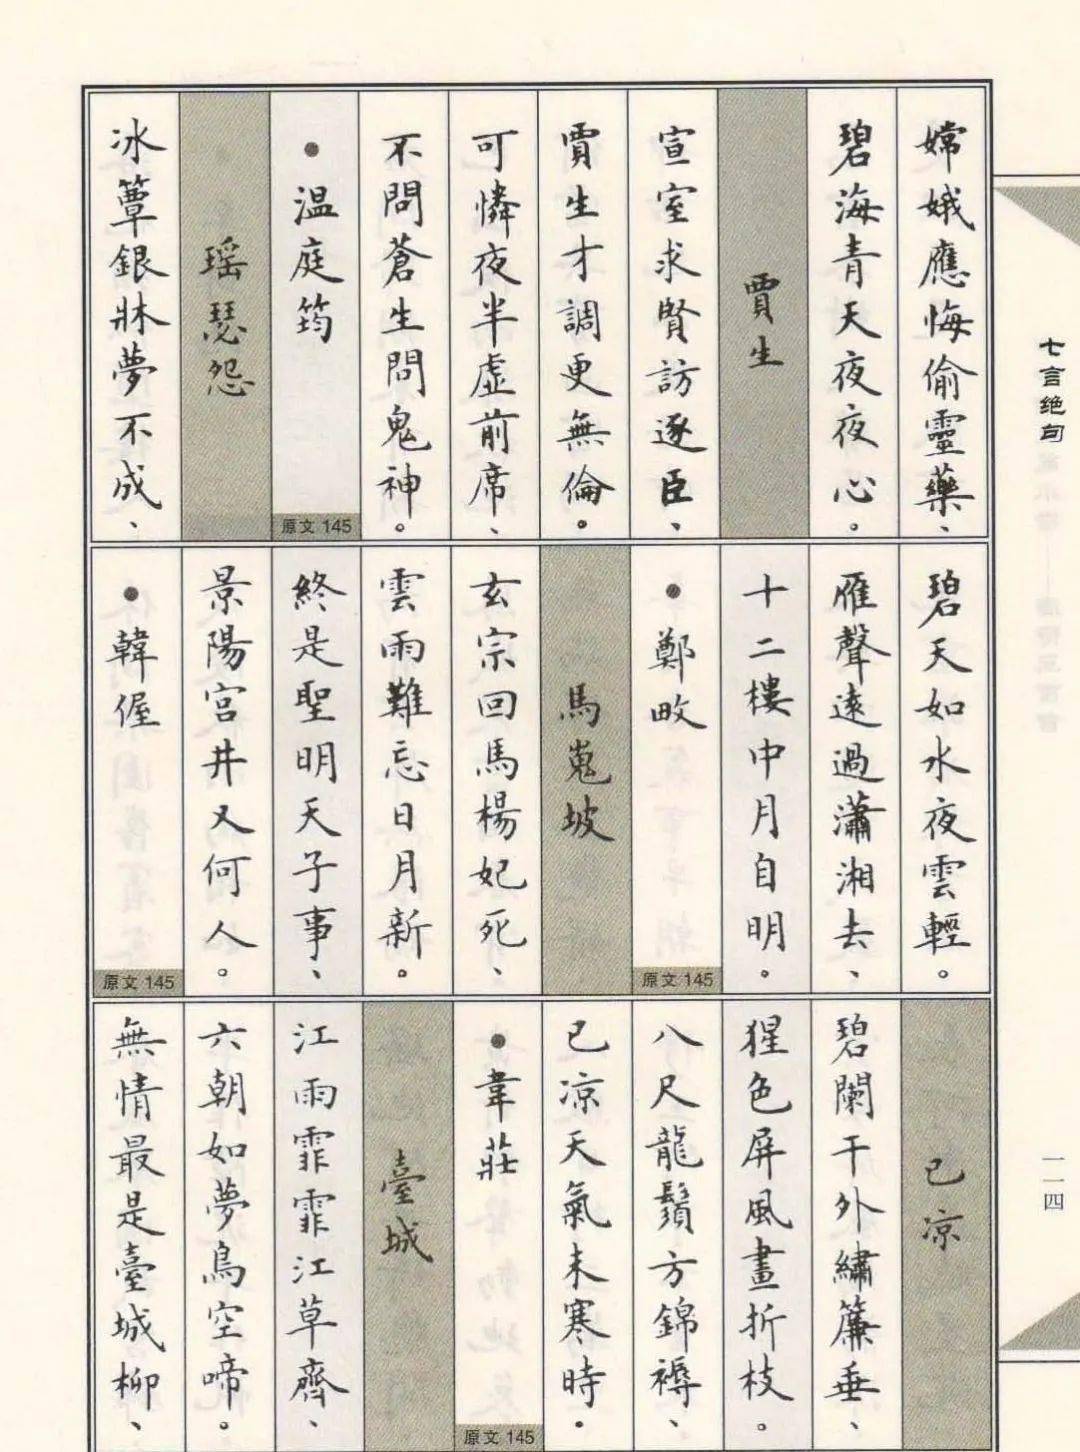 嫦娥應悔偷靈藥、
碧海青天夜夜心。
賈生
宣室求賢訪逐臣、
賈生才調更無倫。
可憐夜半虛前席、
不問蒼生問鬼神。
●温庭筠
原文 145
瑶瑟怨
冰簟銀牀夢不成、
碧天如水夜雲輕。
雁聲遠過瀟湘去、
十二樓中月自明。
●鄭畋
原文 145
馬嵬坡
玄宗回馬楊妃死、
雲雨難忘日月新。
終是聖明天子事、
景陽宮井又何人。
●韓偓
原文 145
已凉
碧闌干外繡簾垂、
猩色屏風畫折枝。
八尺龍鬚方錦褥、
已凉天氣未寒時.
●韋莊
原文 145
臺城
江雨霏霏江草齊、
六朝如夢鳥空啼。
無情最是臺城柳、
七言绝句
一一四